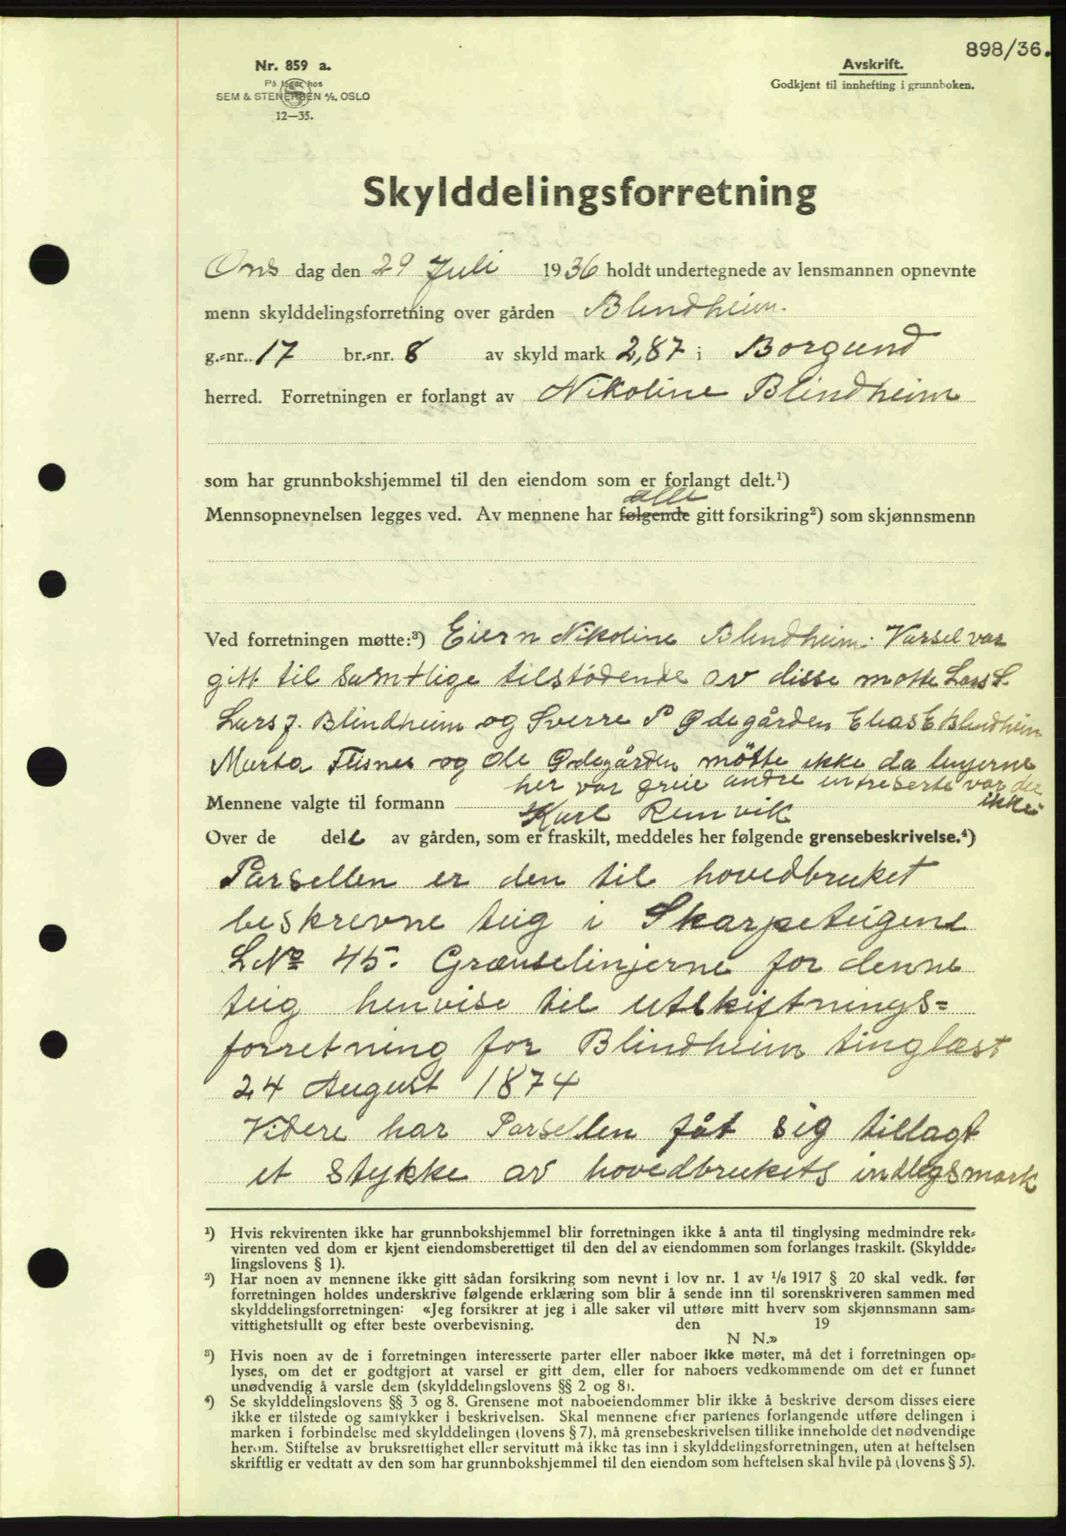 898/36.
Nr. 859 a.
På lager hos
SEM & STENERSEN A/S, OSLO
12—35.
Avskrift.
Godkjent til innhefting i grunnboken.
Skylddelingsforretning
Ons dag den 29 Juli 1936 holdt undertegnede av lensmannen opnevnte
menn skylddelingsforretning over gården Blindheim.
g.-nr. 17 br.-nr. 8 av skyld mark 2,87 i Borgund
herred. Forretningen er forlangt av Nikoline Blindheim
som har grunnbokshjemmel til den eiendom som er forlangt delt.¹)
alle
Mennsopnevnelsen legges ved. Av mennene har følgende gitt forsikring²) som skjønnsmenn
Ved forretningen møtte:³) Eiern Nikoline Blindheim. Varsel var
gitt til samtlige tilstødende av disse møtte Lars S.
Lars J. Blindheim og Sverre P Ødegården Elias E Blindheim
Marta Flisnes og Ole Ødegården møtte ikke da linjerne
her var greie andre intreserte var der
ikke
Mennene valgte til formann Karl Remvik
Over de del av gården, som er fraskilt, meddeles her følgende grensebeskrivelse.⁴)
Parsellen er den til hovedbruket
beskrevne teig i Skarpeteigene
LNo 45. Grænselinjerne for denne
teig henvise til utskiftnings=
forretning for Blindheim tinglæst
24 August 1874
Videre har Parsellen fåt sig tillagt
et stykke av hovedbrukets indlegsmark
¹) Hvis rekvirenten ikke har grunnbokshjemmel blir forretningen ikke å anta til tinglysing medmindre rek=
virenten ved dom er kjent eiendomsberettiget til den del av eiendommen som forlanges fraskilt. (Skyldde=
lingslovens § 1).
²) Har noen av mennene ikke gitt sådan forsikring som nevnt i lov nr. 1 av 1/6 1917 § 20 skal vedk. før
forretningen holdes underskrive følgende erklæring som blir å sende inn til sorenskriveren sammen med
skylddelingsforretningen: «Jeg forsikrer at jeg i alle saker vil utføre mitt hverv som skjønnsmann sam=
vittighetsfullt og efter beste overbevisning. den 19
N N.»
³) Hvis noen av de i forretningen interesserte parter eller naboer ikke møter, må det i forretningen op=
lyses, om det er godtgjort at varsel er gitt dem, eller for naboers vedkommende om det er funnet
unødvendig å varsle dem (skylddelingslovens §§ 2 og 8).
⁴) Se skylddelingslovens §§ 3 og 8. Grensene mot naboeiendommer blir ikke å beskrive dersom disses eiere
ikke er tilstede og samtykker i beskrivelsen. Skal mennene efter partenes forlangende utføre delingen i
marken i forbindelse med skylddelingen (lovens § 7), må grensebeskrivelsen tillike inneholde det nødvendige
herom. Stiftelse av bruksrettighet eller servitutt må ikke tas inn i skylddelingsforretningen, uten at heftelsen
skriftlig er vedtatt av den som har grunnbokshjemmel til den eiendom som heftelsen skal hvile på (lovens § 5).